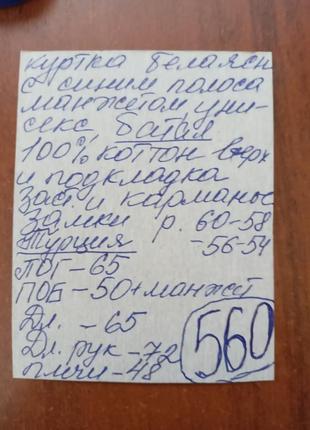 куртка белаясн
с синим полоса
манжетом, уни-
секс Батал
100% коттон верх
и подкладка
заст и карманы
замки р. 60-58
Турция -56-54
ПОГ-65
ПОБ-50+манжет
Дл. -65
Дл. рук-72
плечи-48
560